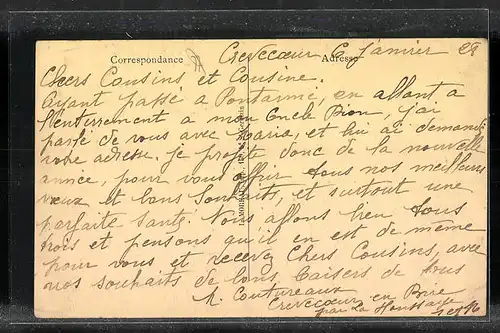 Correspondance Adresse
Crevecœur 6 Janvier 29
Chers Cousins et Cousine.
Ayant passé a Pontarmé, en allant a
l'enterrement a mon Oncle Bion, j'ai
parlé de vous avec Maria, et lui ai demandé
votre adresse. je profite donc de la nouvelle
année, pour vous offrir tous nos meilleurs
vœux et bons souhaits, et surtout une
parfaite santé. Nous allons bien tous
trois et pensons qu'il en est de même
pour vous et recevez Chers Cousins, avec
nos souhaits de bons baisers de tous
A. Coutureaux
Crevecœur en Brie
par La Houssaye